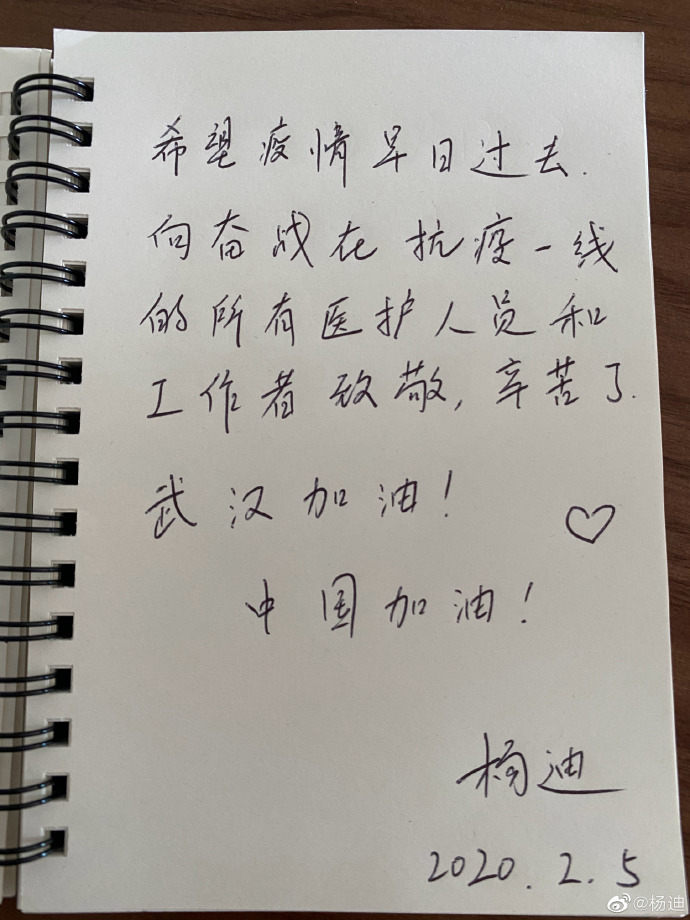 希望疫情早日过去.
向奋战在抗疫一线
的所有医护人员和
工作者致敬,辛苦了.
武汉加油!
中国加油!
杨迪
2020.2.5
@杨迪